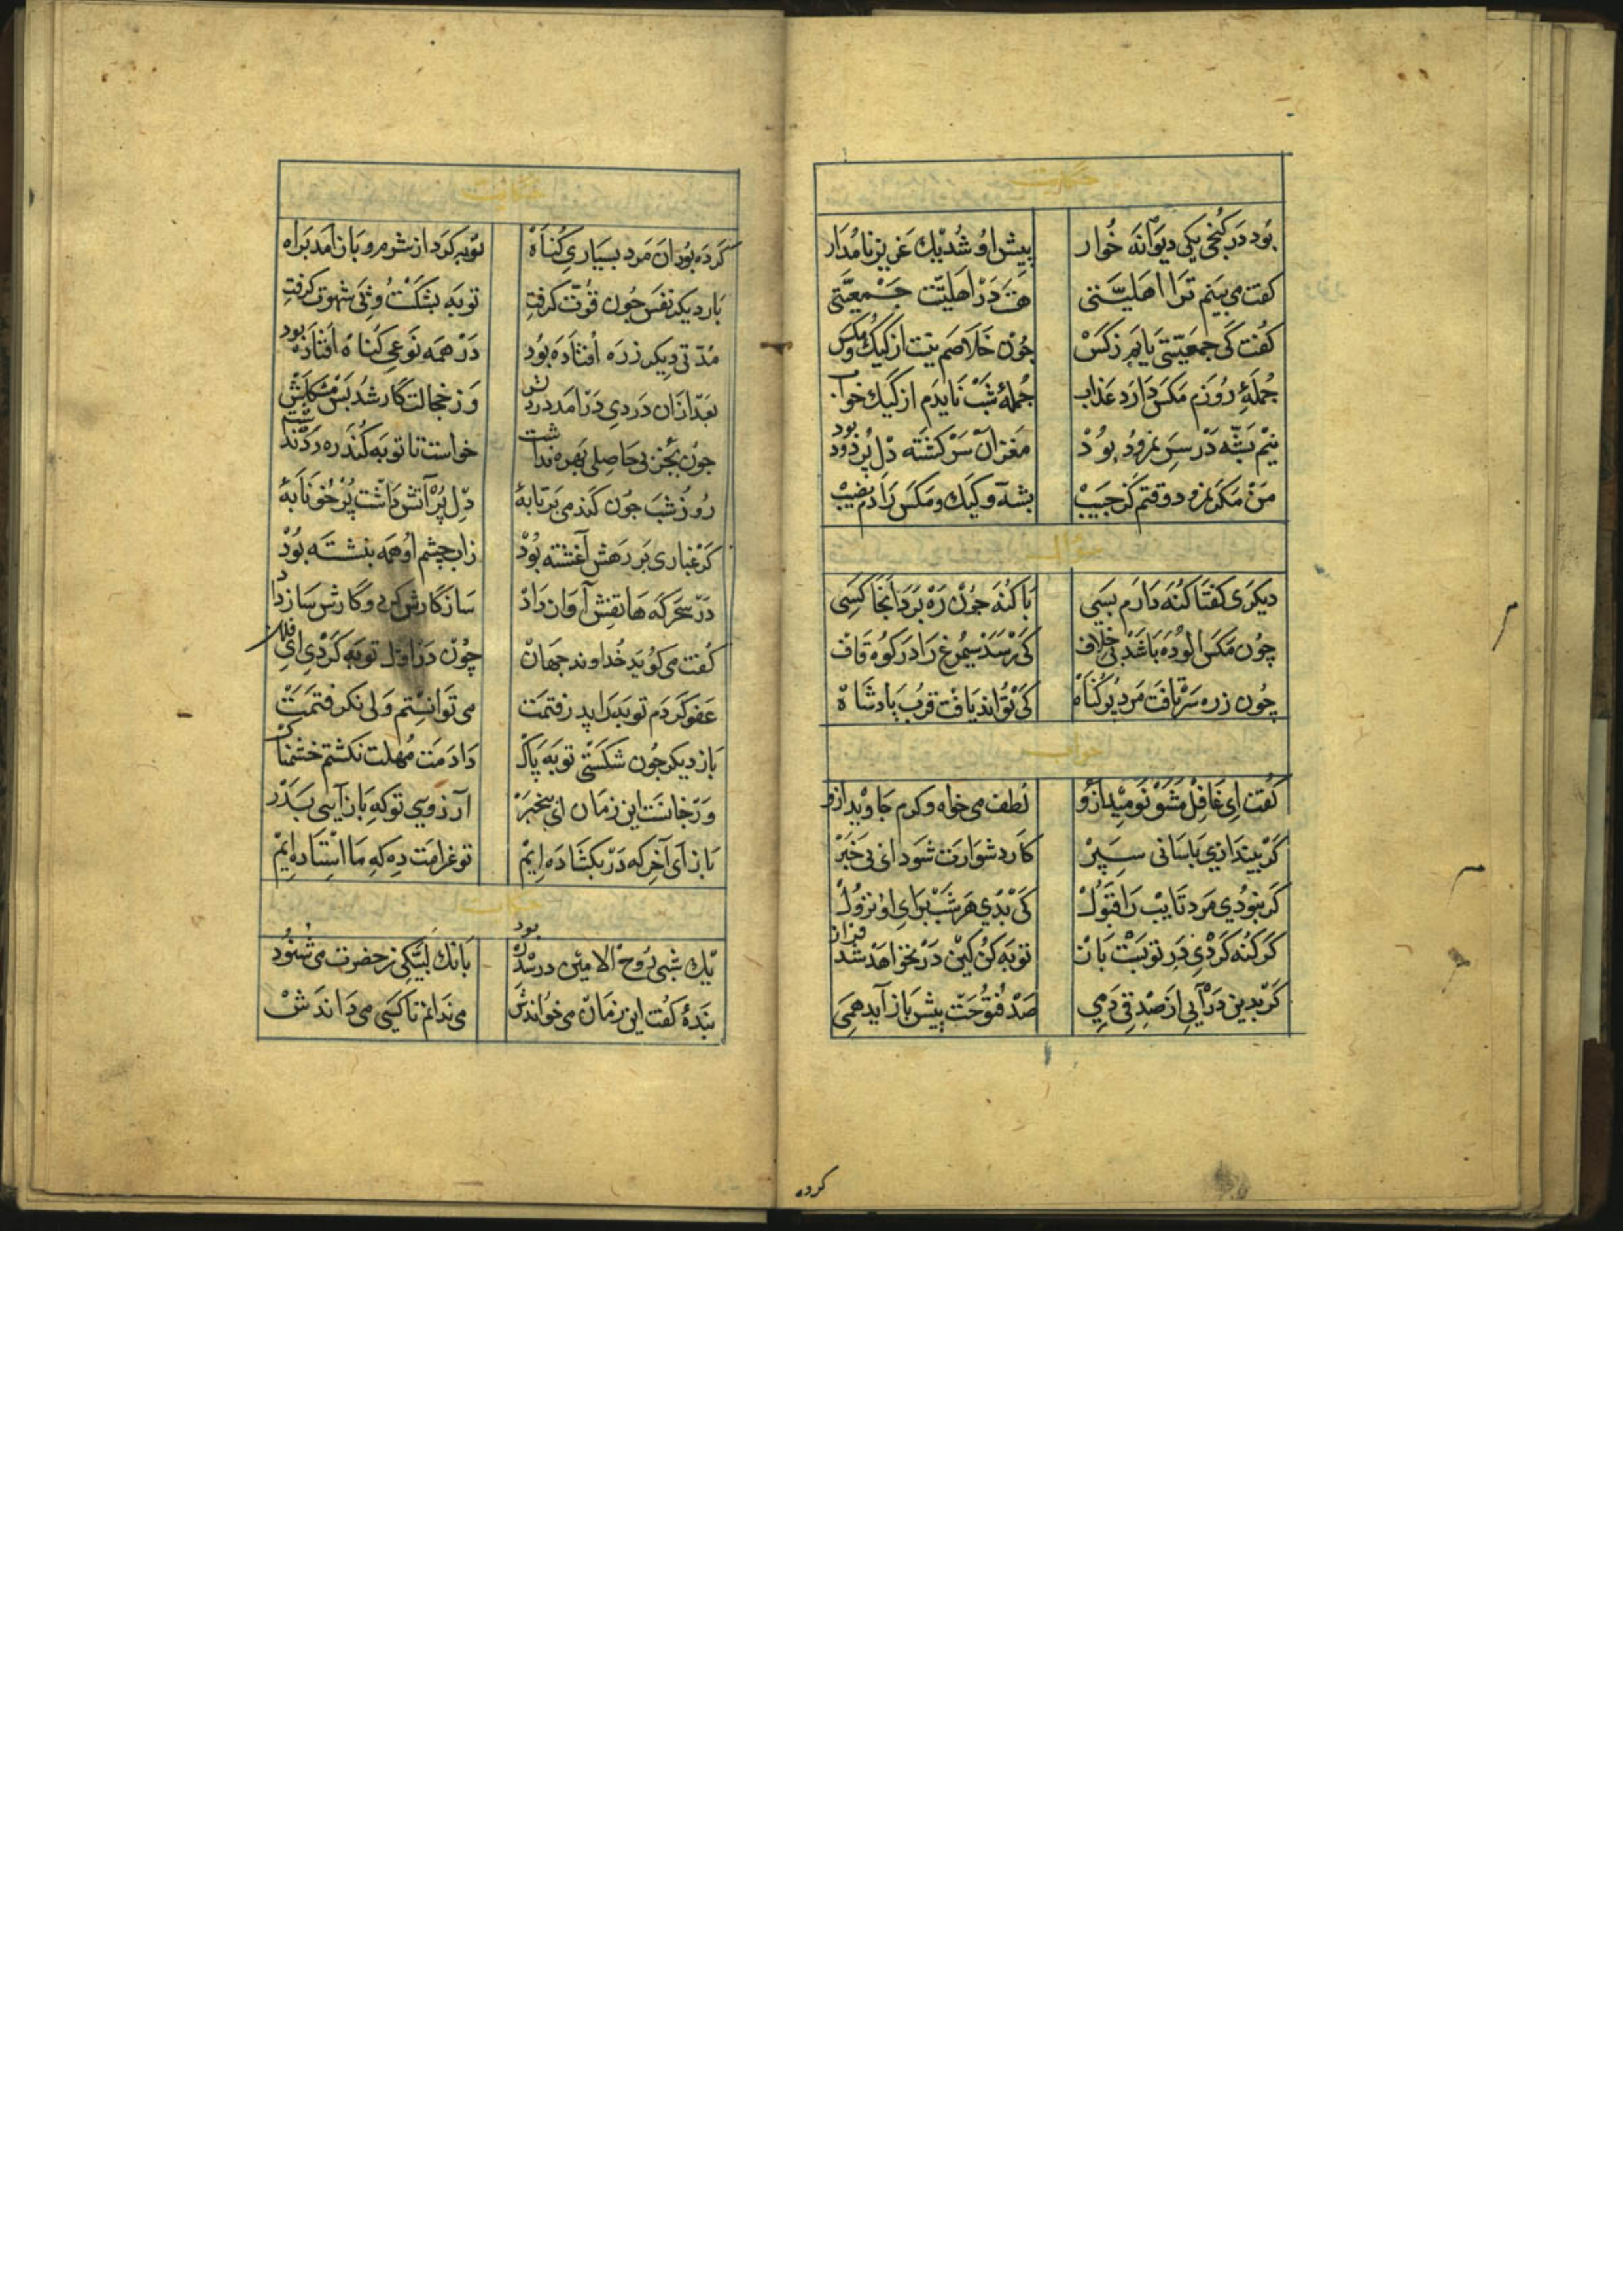 حکایت
بُود دَر کُنجی یکی دیوَانَه خُوار پیشِ اوُ شُد یک عَزیز نامُدَار
کفت می بینم تَرا اهلیّتی هَست دَر اَهلیّتت جَمعیَّتی
کُفت کَی جمعیّتی یابَم ز کَس جُون خَلاصَم نیت از کیک و مکَس
جُملَهٔ رُوزم مَکس دَارَد عَذاب جُملهٔ شَب نایدَم از کَیک خواب
نیم پَشّه دَر سَرِ نمرود بوُد مَغز آن سَرکَشته دل پُر دود بود
مَن مَکر نمرود وقتم کَز حبیب پشه و کیک و مکس دارم نصیب
سؤال
دیکری کفتا کنَه دارم بسی با کُنَه چون رَه بَرَد آنجا کسی
چُون مَکس الوُدَه باشد بی خلاف کَی رسَد سیمُرغ را در کوه قاف
چُون ز ره سر تافت مَرد پر کُناه کَی تواند یافت قُرب پادشاه
جواب
کفت ای غافِل مشَو نومید ازو لطف می خواه و کرم جاوید ازو
کر بیندازی باسانی سپر کار دشوارت شود ای بی خَبَر
کر نبودی مرد تایب را قَبول کی بُدی هر شب برای او نزول
کر کنه کردی در توبَست باز توبه کن کین در نخواهد شد فراز
کر بدین درآیی از صدقی دمی صد فتوحَت پیش باز آید همی
کرده
حکایت
کرده بود آن مرد بسیاری کناه توبه کرد از شرم و باز آمد براه
بار دیکر نفس جون قوّت کرفت توبه بشکست و پی شهوت کرفت
مُدّتی دیکر ز ره افتاده بود در همه نوعی کناه افتاده بود
بعد از آن دردی در آمد در دلش وز خجالت کار شد بس مشکلش
جون بجز بی حاصلی بهره نداشت خواست تا توبه کند زهره نداشت
روز شب جون کندمی بر تابهٔ دل پر آتش داشت پر خونابهٔ
کر غباری بر رهش آغشته بود ز اب چشم او همه بنشسته بود
در سحرکه هاتفش آواز داد سازکارش کرد و کارش ساز داد
کفت می کوید خداوند جهان چون در اول توبه کردی ای فلان
عفو کردم توبه را پذرفتمت می توانستم ولی نکرفتمت
باز دیکر جون شکستی توبه پاک دادمت مهلت نکشتم خشمناک
ور جانست این زمان ای بیخبر آرزوی تو که باز آیی بدر
باز آی آخر که در بکشاده ایم تو غرامت ده که ما استاده ایم
حکایت
یک شبی روح الامین در سدره بود بانک لبیکی ز حضرت می شنود
بندهٔ کفت این زمان می خواندش می ندانم تا کسی می داندش